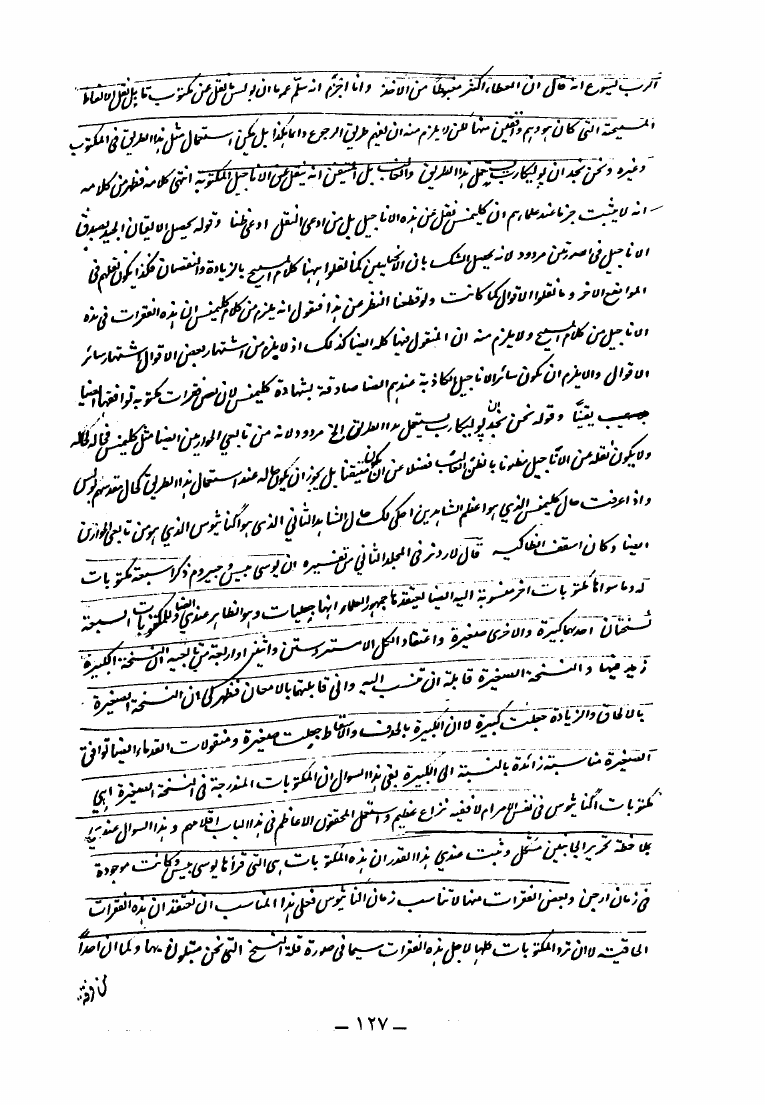 الرب ليسوع انه قال ان العطاء اكثر مغبوطاً من الاخذ وانا اجزم انه سلّم عمدا ان بوليس ما نقل عن مكتوب بل نقل الالفاظ
المسيحية التى كان هو وهم واقفين منها لكن لا يلزم منه ان يفهم طريق الرجوع دائما هكذا بل يمكن استعمال مثل هذا الطريق فى المكتوب
وغيره ونحن نجد ان پوليكارپ يستعمل هذا الطريق والغالب بل المتيقن انه ينقل عن الاناجيل المكتوبة انتهى كلامه فظهر من كلامه
انه لا يثبت جزما عند علمائهم ان كليمنس نقل عن هذه الاناجيل بل من ادعى النقل ادعى ظنا وقوله يحصل الايقان الجيد بصدق
الاناجيل فى امرين مردود لانه يحصل الشك بان الانجيليين كما نقلوا ههنا كلام المسيح بالزيادة والنقصان فكذا يكون نقلهم فى
المواضع الاخر وما نقلوا الاقوال كما كانت ولو قطعنا النظر عن هذا فنقول انه يلزم من كلام كليمنس ان هذه الفقرات فى هذه
الاناجيل من كلام المسيح ولا يلزم منه ان المنقول فيها كله ايضا كذلك اذ لا يلزم من اشتهار بعض الاقوال اشتهار سائر
الاقوال والا يلزم ان يكون سائر الاناجيل الكاذبة عندهم ايضا صادقة بشهادة كليمنس لان بعض فقرات مكتوبه توافقها ايضا
يقينًا وقوله نحن نجد ان پوليكارپ يستعمل هذا الطريق الخ مردود لانه من تابعي الحواريين ايضا مثل كليمنس فحاله كحاله
ولا يكون نقله عن الاناجيل مظنونا بالظن الغالب فضلا عن ان يكون متيقنا بل يجوز ان يكون حاله عند استعمال هذا الطريق كحال مقدسهم بولس
واذا عرفت حال كليمنس الذي هو اعظم الشاهدين احكى لك حال الشاهد الثاني الذى هو اگناثيوس الذي هو من تابعى الحواريين
ايضا وكان اسقف انطاكيه قال لاردنر فى المجلد الثاني من تفسيره ان يوسى بيس وجيروم ذكرا سبعة مكتوبات
له وما سواها مكتوبات اخر منسوبة اليه ايضا يعتقدها جمهور العلماء انها جعليات وهو الظاهر عندي ايضا وللمكتوبات السبعة
نسختان احدهما كبيرة والاخرى صغيرة واعتقاد الكل الا مستر وستن واثنين او اربعة من تابعيه ان النسخة الكبيرة
زيد فيها والنسخة الصغيرة قابلة ان تنسب اليه وانى قابلتها بالامعان فظهر لى ان النسخة الصغيرة
بالالحاق والزيادة جعلت كبيرة لا ان الكبيرة بالحذف والاسقاط جعلت صغيرة ومنقولات القدماء ايضا توافق
الصغيرة مناسبة زائدة بالنسبة الى الكبيرة بقى هذا السوال ان المكتوبات المندرجة فى النسخة الصغيرة اهى
مكتوبات اگناثيوس فى نفس الامر ام لا ففيه نزاع عظيم واستعمل المحققون الاعاظم فى هذا الباب اقلامهم وهذا السوال عندي
بملاحظة تحرير الجانبين مشكل وثبت عندي هذا القدر ان هذه المكتوبات هى التى قرأها يوسى بيس وكانت موجودة
فى زمان ارجن وبعض الفقرات منها لا تناسب زمان اگناثيوس فعلى هذا المناسب ان نعتقد ان هذه الفقرات
الحاقية لا ان نرد المكتوبات كلها لاجل هذه الفقرات سيما فى صورة قلة النسخ التى نحن مبتلون بها وكما ان احداً
من فرقة
— ١٢٧ —